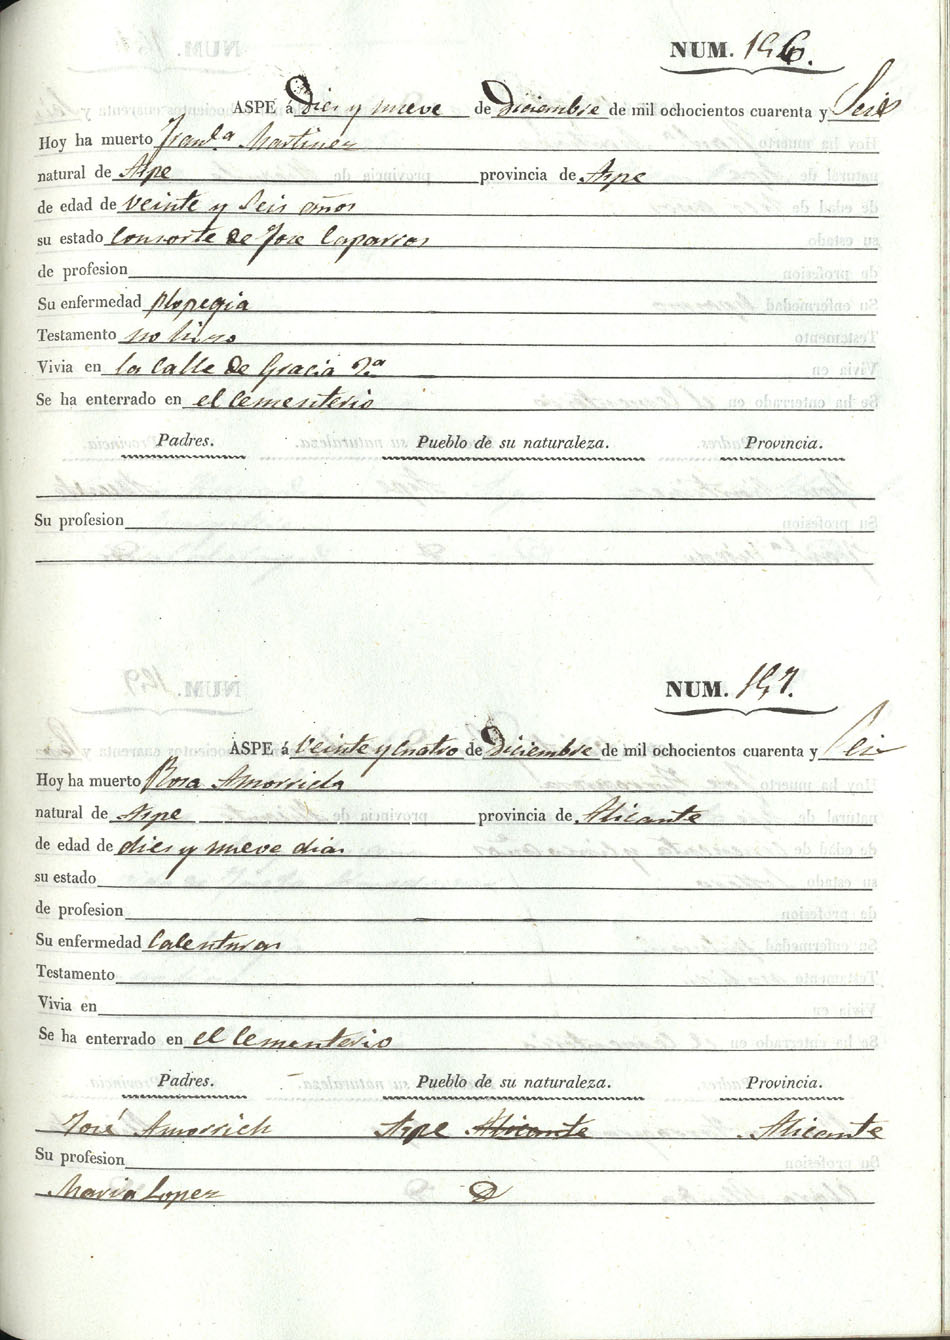 NUM. 196.
ASPE á Dies y nueve de Diciembre de mil ochocientos cuarenta y Seis
Hoy ha muerto Fran.ca Martinez
natural de Aspe provincia de Aspe
de edad de veinte y Seis años
su estado Consorte de Jose Caparros
de profesion
Su enfermedad plopegia
Testamento no hizo
Vivia en la Calle de Gracia
Se ha enterrado en el Cementerio
Padres. Pueblo de su naturaleza. Provincia.
Su profesion
NUM. 197.
ASPE á Veinte y cuatro de Diciembre de mil ochocientos cuarenta y Seis
Hoy ha muerto Rosa Amorrich
natural de Aspe provincia de Alicante
de edad de dies y nueve dias
su estado
de profesion
Su enfermedad Calenturas
Testamento
Vivia en
Se ha enterrado en el Cementerio
Padres. Pueblo de su naturaleza. Provincia.
José Amorrich Aspe Alicante Alicante
Su profesion
Maria Lopez D